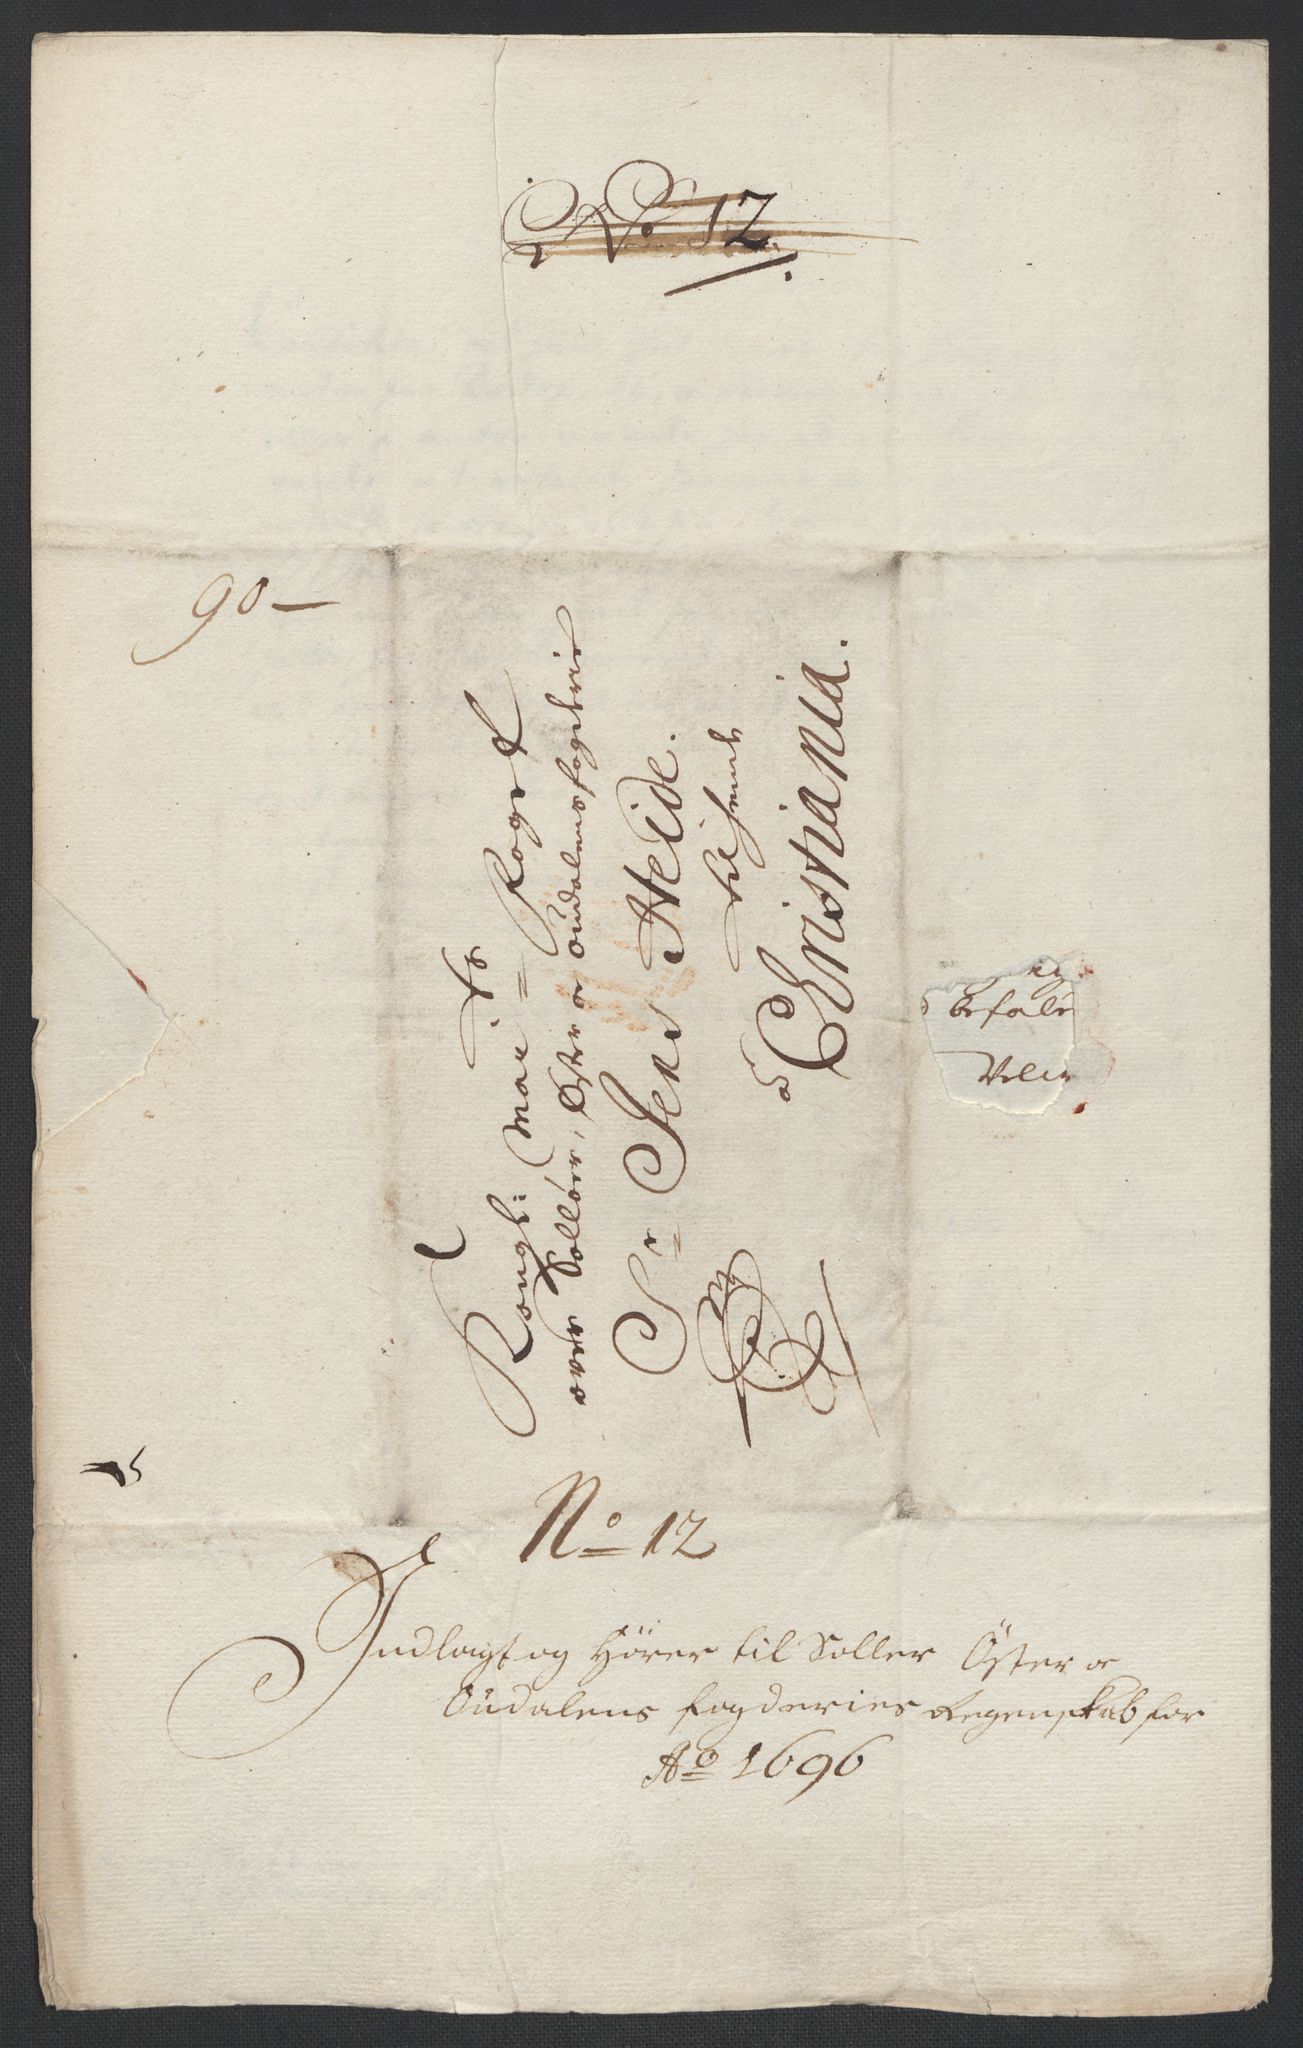 No 12.
90 —
Kongl: May: tz
Foget
over Sollöer, Öster oc Oudalens fogderie
Sr Jens Heide.
à
Christiania.
befale
No 12
Indlagt og Hörer til Soller Öster oc
Oudalens fogderies Regenskab for
Ao 1696